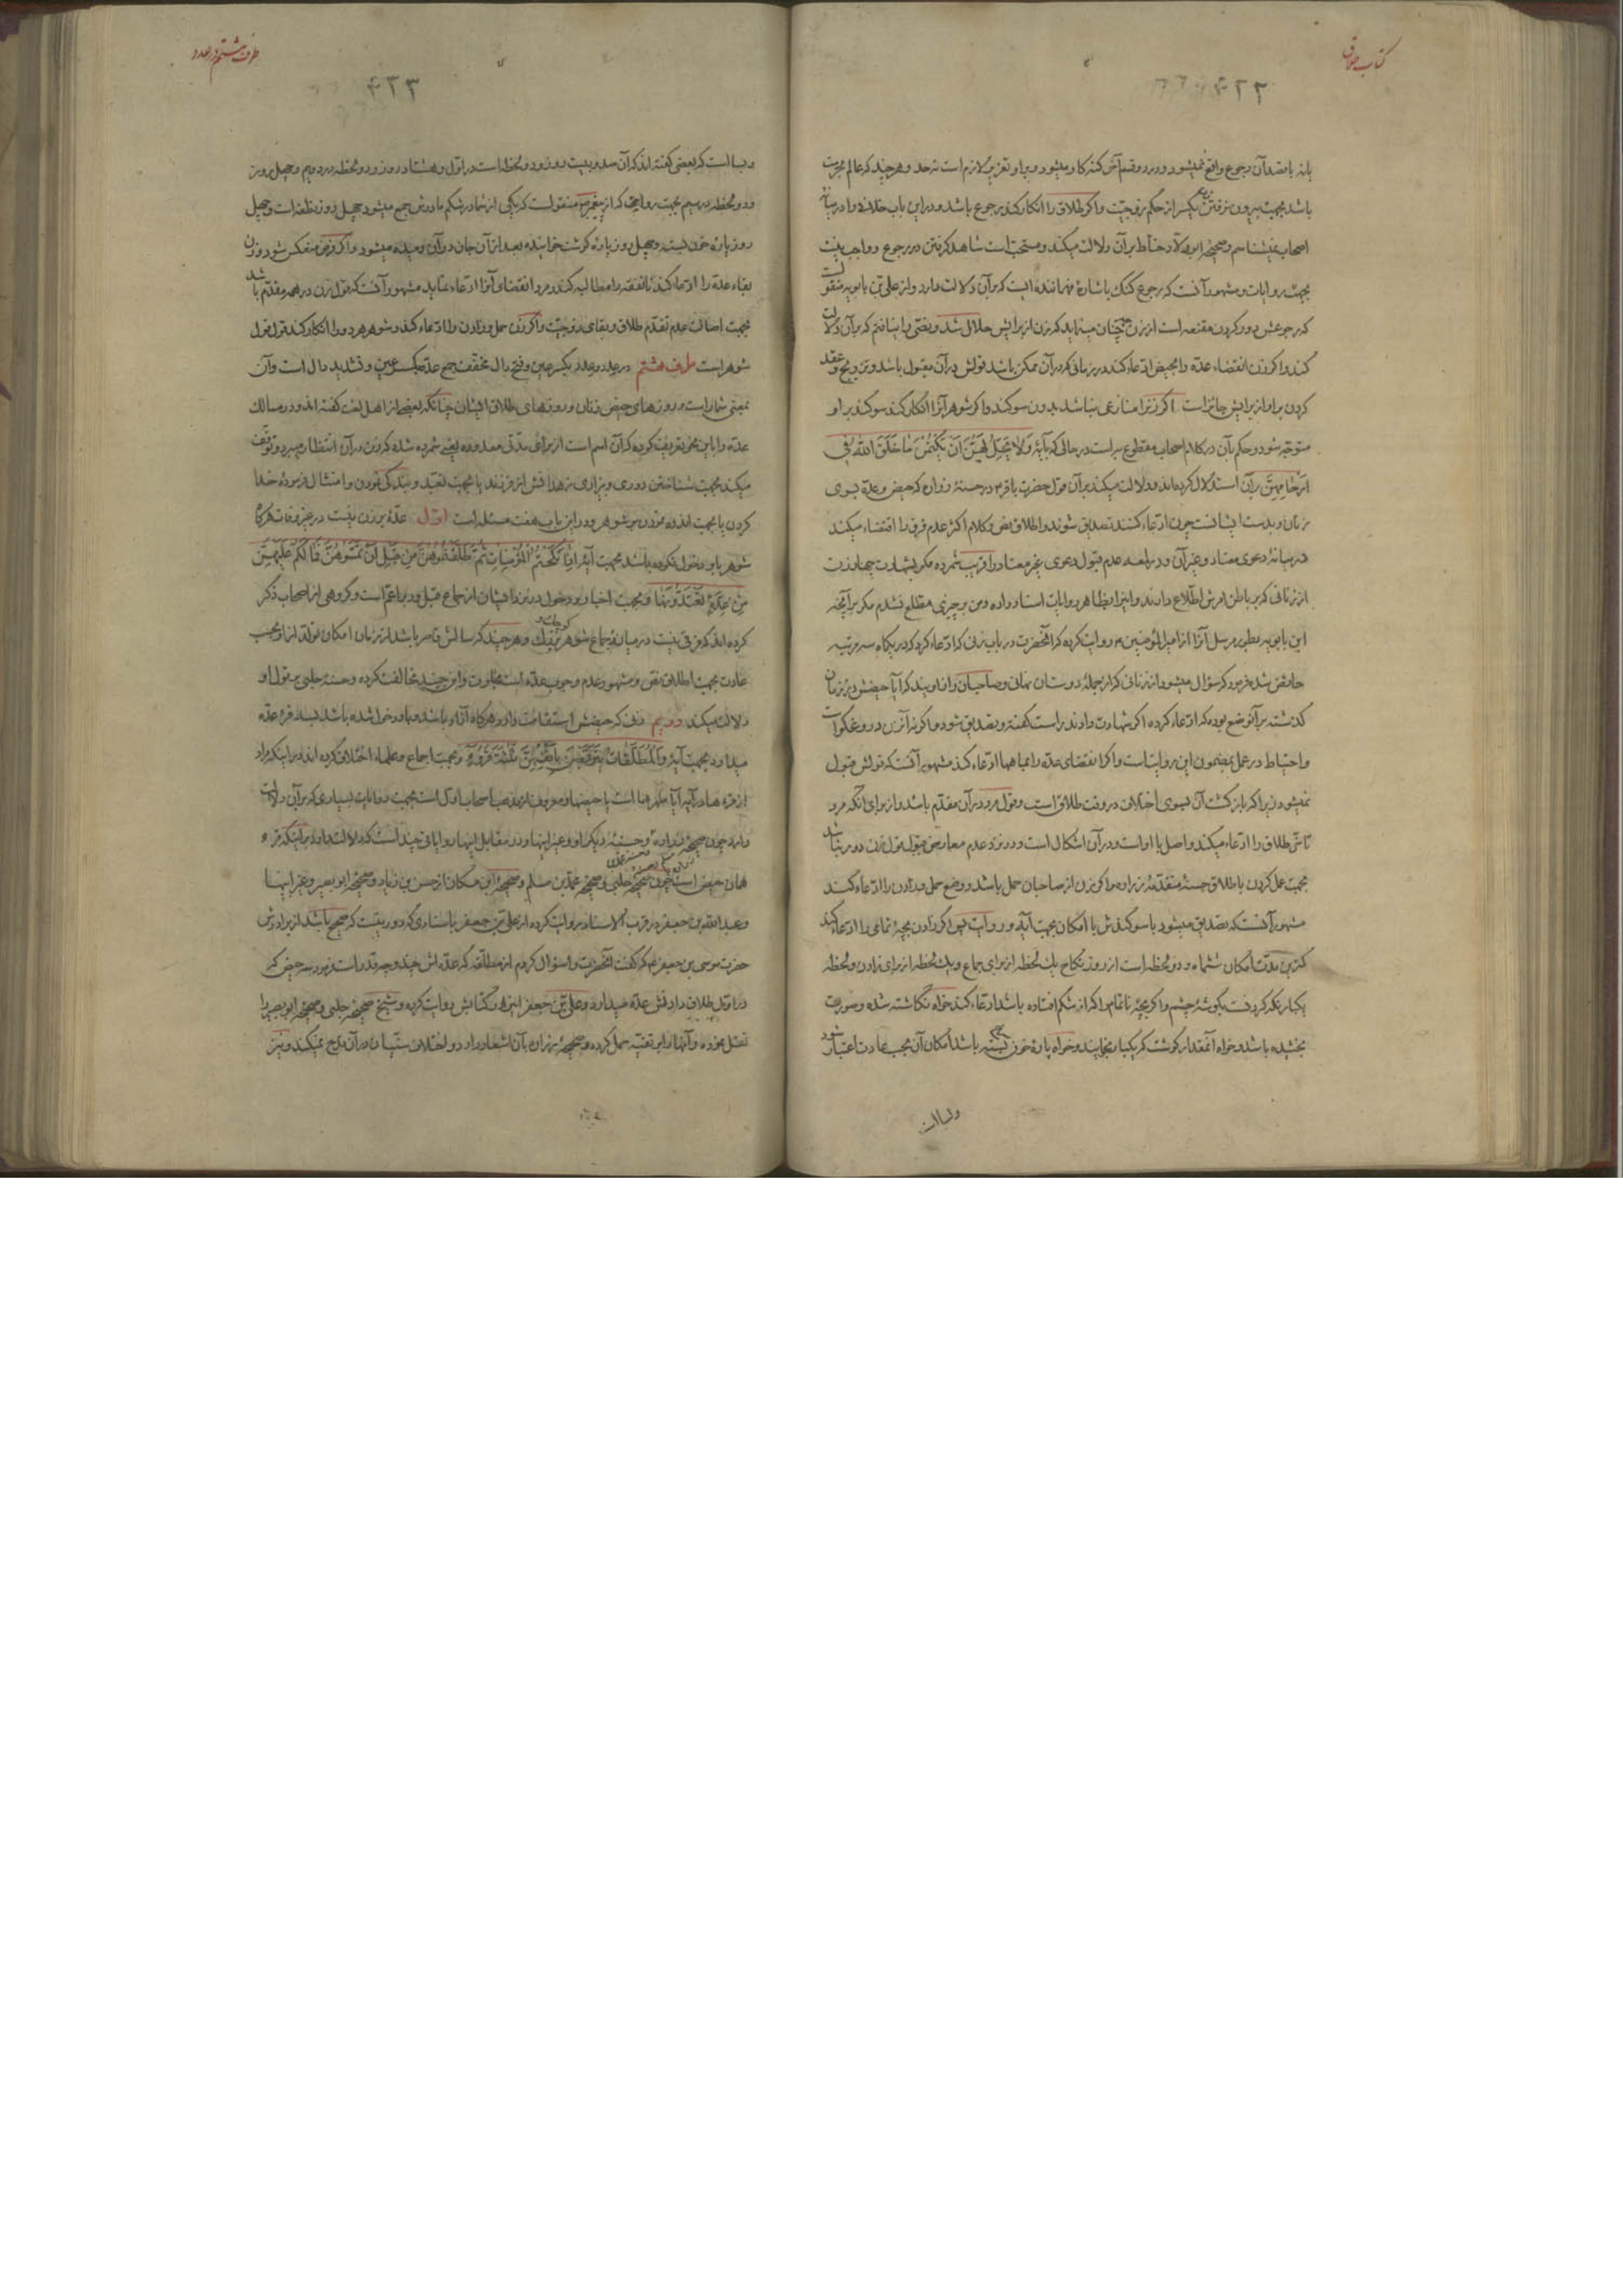 کتاب طلاق
یا نه با قصد آن رجوع واقع نمیشود و در دو قسم آخر گنه کار میشود و بر او تعزیر لازم است نه حد و هر چند که عالم بحرمت
باشد بجهت بیرون نرفتن زن بعد از حکم زوجیت و اگر طلاق را انکار کند رجوع باشد و در این باب خلافی را در میانه
اصحاب نمیشناسم و صحیحهٔ ابو ولاد حناط بر آن دلالت میکند و مستحب است شاهد گرفتن در رجوع و واجب نیست
بجهت روایات و مشهور آنست که رجوع گنگ باشارهٔ فهماننده است که بر آن دلالت دارد و از علی بن بابویه منقول است
که رجوعش دور کردن مقنعه است از زن همچنان مینماید که زن از برایش حلال شد و نصی را نیافتم که بر آن دلالت
کند و اگر زن انقضاء عدة را بحیض ادعاء کند در زمانی که در آن ممکن باشد قولش در آن مقبول باشد و تزویج و عقد
کردن بر او از برایش جائز است اگر زنرا منازعی نباشد بدون سوگند و اگر شوهر آنرا انکار کند سوگند بر او
متوجه شود و حکم بآن در کلام اصحاب مقطوع به است در حالی که بآیهٔ وَلا يَحِلُّ لَهُنَّ اَنْ يَكْتُمْنَ مٰا خَلَقَ اللّٰهُ فِي
اَرْحٰامِهِنَّ بر آن استدلال کرده‌اند و دلالت میکند بر آن قول حضرت باقر ع در حسنهٔ زراره که حیض و عدة بسوی
زنان و بدست ایشانست چون ادعاء کنند تصدیق شوند و اطلاق نص و کلام اکثر عدم فرق را اقتضاء میکند
در میانهٔ دعوی معتاد و غیر آن و در لمعه عدم قبول دعوی غیر معتاد را قریب شمرده مگر بشهادت چهار زن
از زنانی که بر باطن امرش اطلاع دارند و اینرا بظاهر روایات اسناد داده و من بر چیزی مطلع نشدم مگر بر آنچه
ابن بابویه بطور مرسل آنرا از امیر المؤمنین ع روایت کرده که آنحضرت در باب زنی که ادعاء کرد که در یکماه سه مرتبه
حائض شد فرمود که سؤال میشود از زنانی که از جملهٔ دوستان نهانی و صاحبان راز اویند که آیا حیضش در زمان
گذشته بر آنوضع بوده که ادعاء کرده اگر شهادت دادند راست گفته و تصدیق شود و اگر نه آنزن دروغگو است
و احتیاط در عمل بمضمون این روایتست و اگر انقضای عدة را بماهها ادعاء کند مشهور آنست که قولش قبول
نمیشود زیرا که بازگشت آن بسوی اختلاف در وقت طلاق است و قول مرد در آن مقدم باشد و از برای آنکه مرد
تأخر طلاق را ادعاء میکند و اصل با او است و در آن اشکال است و در نزد عدم معارض قبول قول زن دور نباشد
بجهت عمل کردن باطلاق حسنهٔ متقدمهٔ زراره و اگر زن از صاحبان حمل باشد و وضع حمل و زادن را ادعاء کند
مشهور آنست که تصدیق میشود با سوگندش با امکان بجهت آیه و روایت پس اگر زادن بچهٔ تمامی را ادعاء کند
کمترین مدت امکان ششماه و دو لحظه است از روز نکاح یک لحظه از برای جماع و یک لحظه از برای زادن
و اگر بچهٔ ناتمام را که از شکم افتاده باشد ادعاء کند خواه نگاشته شده و صورت
بخشیده باشد و خواه آنمقدار گوشت که یکبار بخایند و خواه پارهٔ خون بسته باشد امکان آن بحسب عادت اعتبار شود
و بسا است
ظرف هشتم در عدد
و بسا است که بعضی گفته‌اند که آن صد و بیست روز و دو لحظه است در اول و هشتاد روز و دو لحظه در دویم و چهل روز
و دو لحظه در سیم بجهت روایتی که از پیغمبر ص منقولست که یکی از شما در شکم مادرش جمع میشود چهل روز نطفه است و چهل
روز پاره خون بسته و چهل روز پاره گوشت خائیده بعد از آن جان در آن دمیده میشود و اگر فرض منعکس شود و زن
بقاء عدة را ادعاء کند تا نفقه را مطالبه کند و مرد انقضای آنرا ادعاء نماید مشهور آنست که قول زن در همه مقدم باشد
بجهت اصالت عدم تقدم طلاق و بقای زوجیت و اگر زن حمل و زادن را ادعاء کند و شوهر هر دو را انکار کند قول قول
شوهر است طرف هشتم در عدد و عدد بکسر عین و فتح دال مخفف جمع عدة بکسر عین و تشدید دال است و آن
بمعنی شمار است و روزهای حیض زنان و روزهای طلاق ایشان چنانکه بعضی از اهل لغت گفته‌اند و در مسالک
عدة را باین نحو تعریف کرده که آن اسم است از برای مدتی معدوده یعنی شمرده شده که زن در آن انتظار میبرد و توقف
میکند بجهت شناختن دوری و بیزاری زهدانش از فرزند یا بجهت تعبد و بندگی نمودن و امتثال فرمودهٔ خدا
کردن یا بجهت اندوه خوردن بر شوهر و در این باب هفت مسئله است اول عدة بر زن نیست در غیر وفات هر گاه
شوهر باو دخول نکرده باشد بجهت آیهٔ اِذٰا نَكَحْتُمُ الْمُؤْمِنٰاتِ ثُمَّ طَلَّقْتُمُوهُنَّ مِنْ قَبْلِ اَنْ تَمَسُّوهُنَّ فَمٰا لَكُمْ عَلَيْهِنَّ
مِنْ عِدَّةٍ تَعْتَدُّونَهٰا و بجهت اخبار و دخول در نزد ایشان از جماع قبل و دبر اعم است و گروهی از اصحاب ذکر
کرده‌اند که فرقی نیست در میانهٔ جماع شوهر کوچک و بزرگ و هر چند که سالش قاصر باشد از زمان امکان تولد از او بحسب
عادت بجهت اطلاق نص و مشهور عدم وجوب عدة است بخلوت و ابن جنید مخالفت کرده و حسنهٔ حلبی بر قول او
دلالت میکند دویم زنی که حیضش استقامت دارد هر گاه آزاد باشد و باو دخول شده باشد بسه قرء عدة
میدارد بجهت آیهٔ وَالْمُطَلَّقٰاتُ يَتَرَبَّصْنَ بِاَنْفُسِهِنَّ ثَلٰثَةَ قُرُوءٍ و بجهت اجماع و علماء اختلاف کرده‌اند در اینکه مراد
از قرء در آیه آیا طهرها است یا حیضها و معروف از مذهب اصحاب اول است بجهت روایات بسیاری که بر آن دلالت
دارد چون صحیحهٔ زراره و حسنهٔ دیگر او و غیر اینها و در مقابل اینها روایاتی چند است که دلالت دارد بر اینکه قرء
همان حیض است چون صحیحهٔ حلبی و صحیحهٔ محمد بن مسلم و صحیحهٔ ابن مسکان از حسن بن زیاد و صحیحهٔ ابو بصیر و غیر اینها
و عبد الله بن جعفر در قرب الاسناد روایت کرده از علی بن جعفر باسنادی که دور نیست که صحیح باشد از برادرش
حضرت موسی بن جعفر ع م که گفت آنحضرت را سؤال کردم از مطلقه که عده‌اش چند و چه قدر است فرمود سه حیض که
در اول طلاق دادنش عدة میدارد و علی بن جعفر اینرا در کتابش روایت کرده و شیخ صحیحهٔ حلبی و صحیحهٔ ابو بصیر را
نقل نموده و آنها را بر تقیه حمل کرده و صحیحهٔ زراره بآن اشعار دارد و اختلاف سنیان در آن قدح نمیکند و نیز